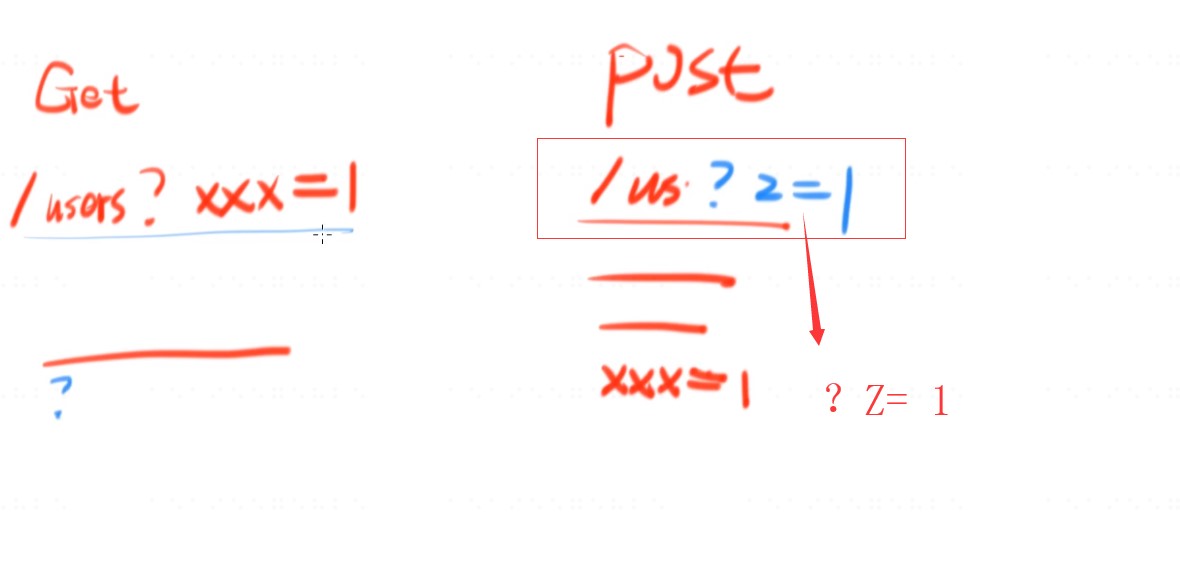 Get
/users? xxx=1
?
post
/us. ? z=1
xxx=1
? Z= 1